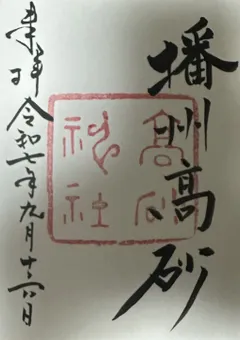 播州高砂
高砂
神社
奉拝
令和七年九月十日